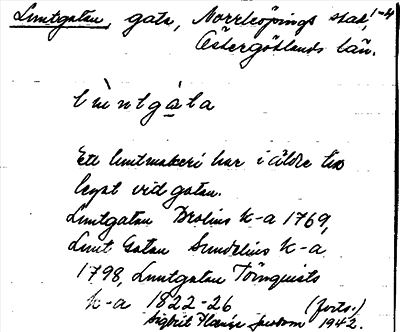 Luntgatan, gata, Norrköpings stad, 1-4
Östergötlands län.
lùntgàta
Ett luntmakeri har i äldre tid
legat vid gatan.
Luntgatan Brolius k-a 1769,
Lunt Gatan Sundelius k-a
1798, Luntgatan Törnquists
k-a 1822-26 (forts.)
Sigbrit 1942.